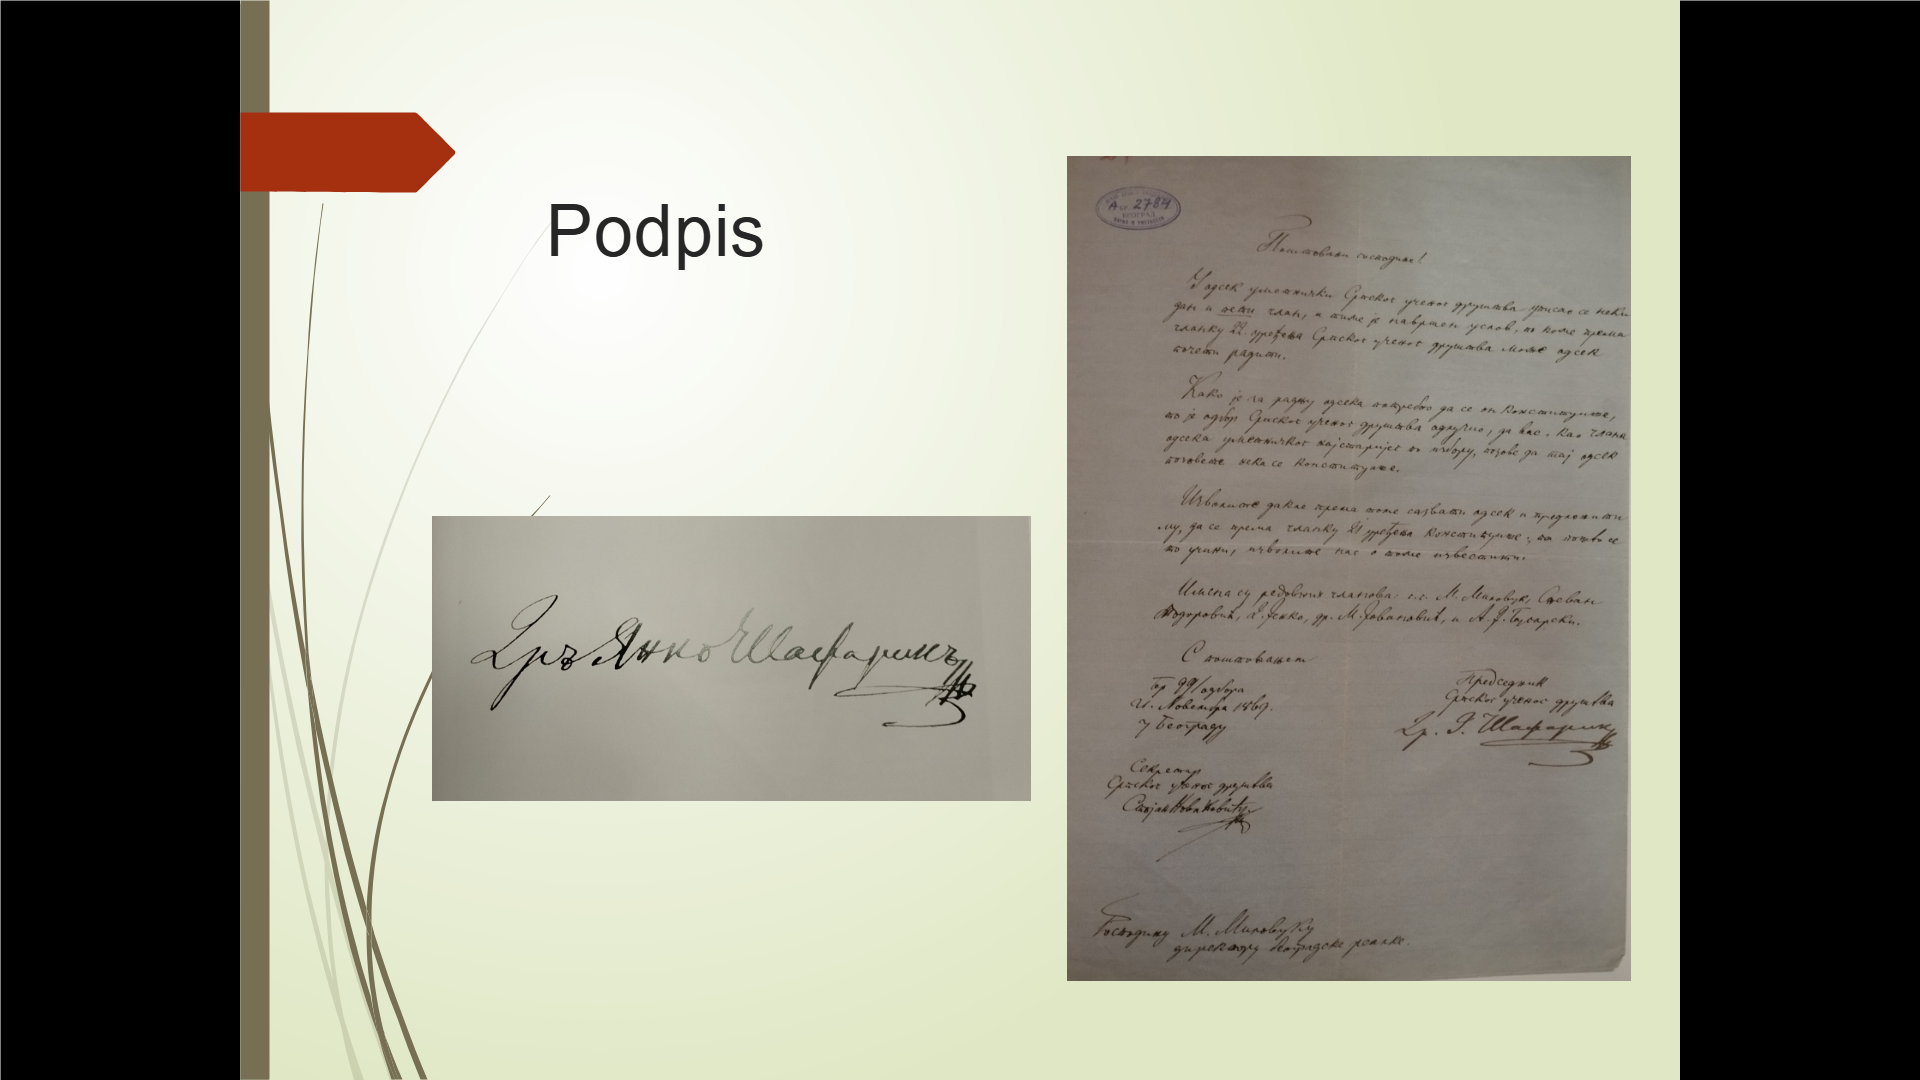 Podpis
Дръ Янко Шафарикъ
А бр. 2784
БЕОГРАД
Поштовани господине!
У одсек уметнички Српског ученог друштва уписао се неки
дан и пети члан, а тиме је навршен услов, по коме према
чланку 22 уређења Српског ученог друштва може одсек
почети радити.
Како је за радњу одсека потребно да се он конституише,
то је одбор Српског ученог друштва одлучио, да вас, као члана
одсека уметничког најстаријег по избору, позове да тај одсек
позовете нека се конституише.
Изволите дакле према томе сазвати одсек и предложити
му, да се према чланку 21 уређења конституише, па пошто се
то учини, изволите нас о томе известити.
Имена су редовних чланова: г.г. М. Миловук, Стеван
Тодоровић, Д. Јенко, др. М. Јовановић, и
С поштовањем
бр 99/одбора
21. Новембра 1869.
у Београду
Председник
Српског ученог друштва
Др. Ј. Шафарик
Секретар
Српског ученог друштва
Стојан Новаковић
Господину М. Миловуку
директору београдске реалке.